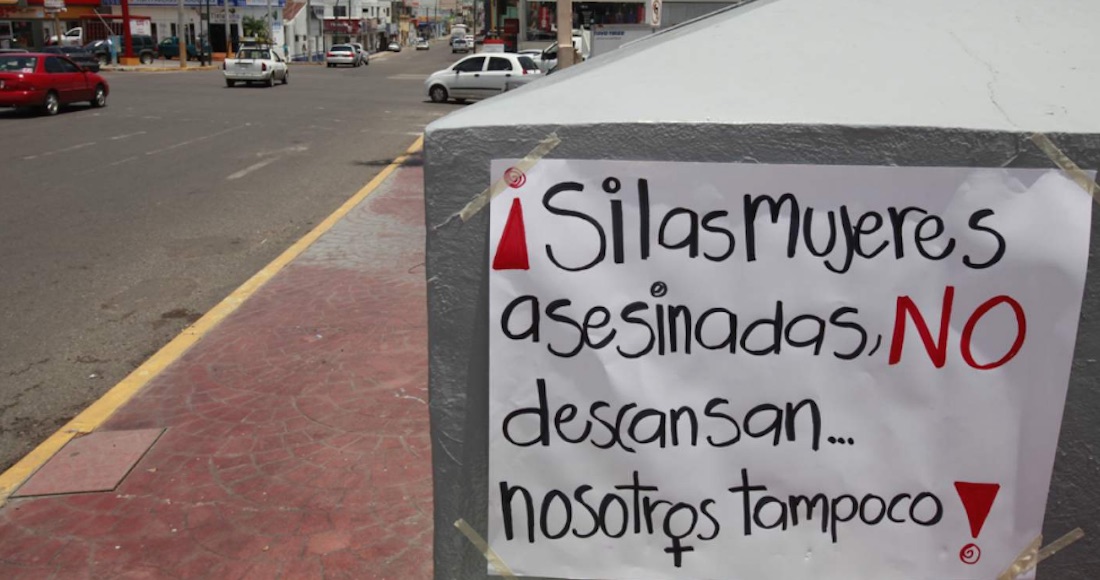 ¡Si las mujeres
asesinadas, NO
descansan...
nosotros tampoco!